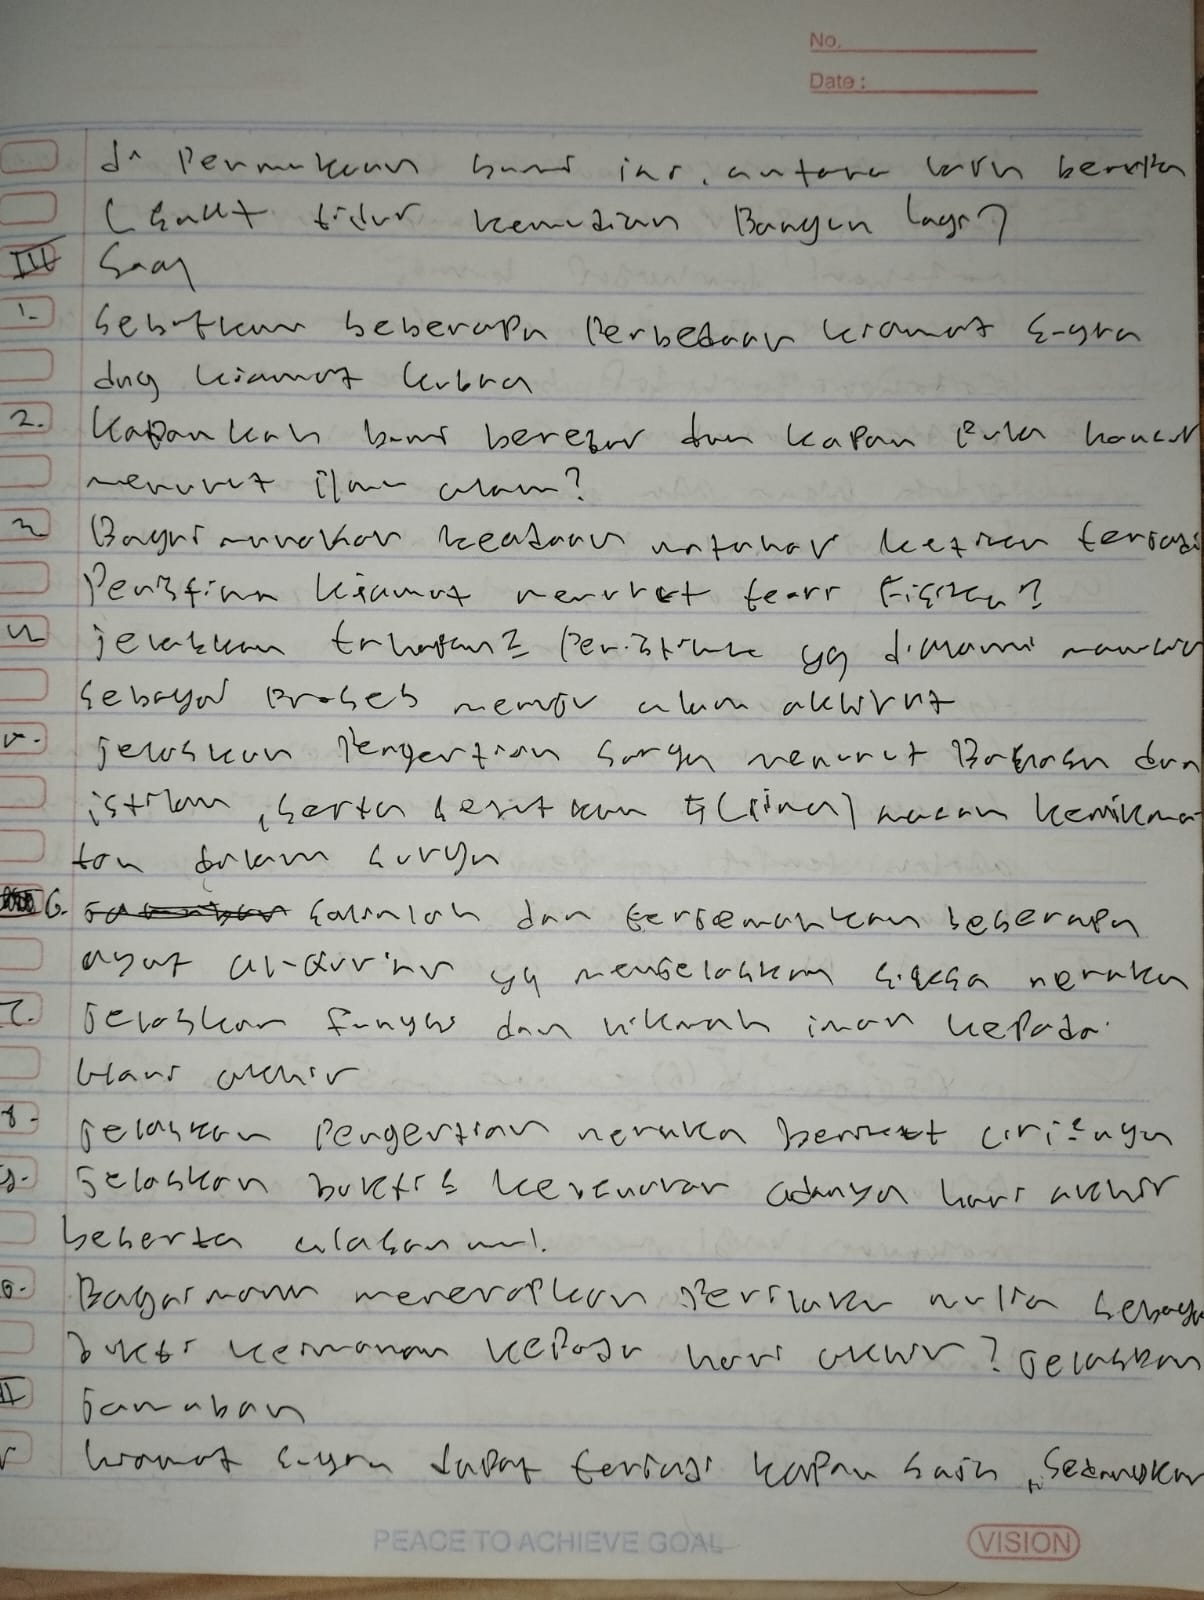 No.
Date :
di Permukaan bumi ini, antara lain berupa
(sakit tidur kemudian Bangun lagi)
III Soal
1. Sebutkan beberapa Perbedaan kiamat sugra
dng kiamat kubra
2. Kapankah bumi berakhir dan kapan pula hancur
menurut ilmu alam?
3 Bagaimanakah keadaan matahari ketika terjadi
Peristiwa kiamat menurut teori Fisika?
4 jelaskan tahapan2 Peristiwa yg dialami manusia
sebagai Proses menuju alam akhirat
5. jelaskan Pengertian Surga menurut Bahasa dan
istilah, serta sebutkan 5 (lima) macam kenikma-
tan dalam surga
6. salinlah dan terjemahkan beberapa
ayat al-Qur'an yg menjelaskan siksa neraka
7. Jelaskan fungsi dan hikmah iman kepada
hari akhir
8. Jelaskan Pengertian neraka berikut ciri2nya
9. Jelaskan bukti2 kebenaran adanya hari akhir
beserta alasannya!
0. Bagaimana menerapkan Perilaku mulia sebagai
bukti keimanan kepada hari akhir? Jelaskan
II Jawaban
1 kiamat sugra dapat terjadi kapan saja, Sedangkan
PEACE TO ACHIEVE GOAL
VISION